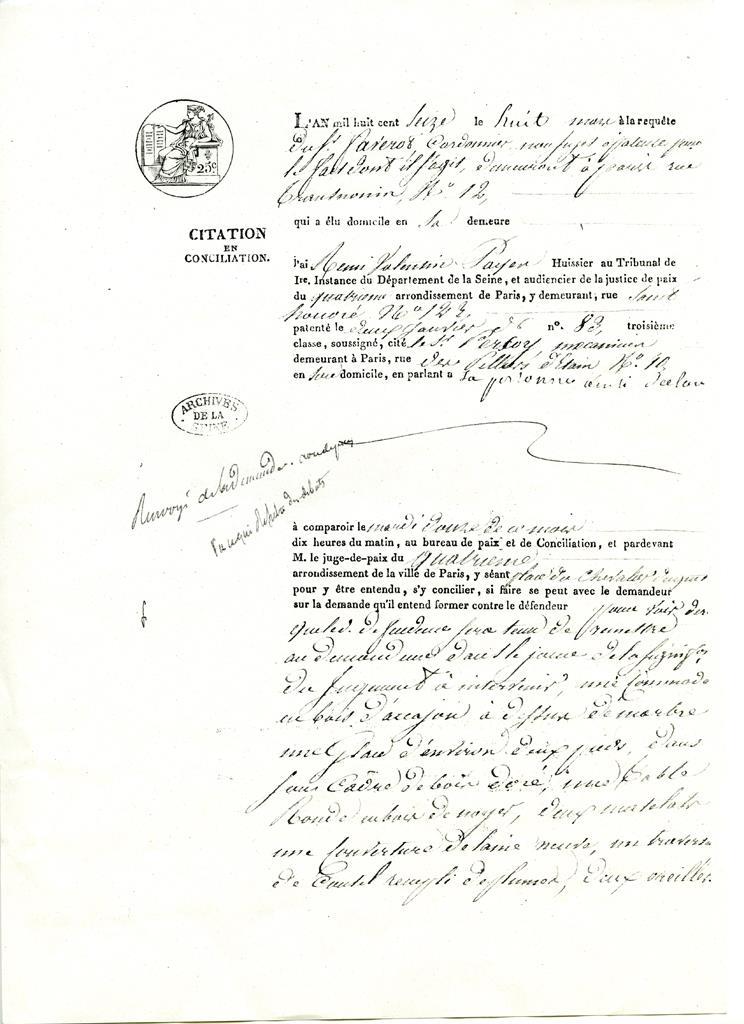 25c
CITATION
EN
CONCILIATION.
L'AN mil huit cent Seize le huit mars à la requête
du Sr. Paverot Cordonnier, non sujet à patente pour
le fait dont il s'agit, demeurant à paris rue
transnonin, No. 12,
qui a élu domicile en sa demeure
j'ai Remi Valentin Payen Huissier au Tribunal de
Ire. Instance du Département de la Seine, et audiencier de la justice de paix
du quatrieme arrondissement de Paris, y demeurant, rue Saint
honoré No 123,
patenté le deux Janvier no. 83, troisième
classe, soussigné, cité le Sr mecanicien
demeurant à Paris, rue des Pilliers d'étain No. 10
en son domicile, en parlant a sa personne ainsi declaré
ARCHIVES
DE LA
SEINE
Renvoyé de la demande
à comparoir le mardi douze de ce mois
dix heures du matin, au bureau de paix et de Conciliation, et pardevant
M. le juge-de-paix du quatrieme
arrondissement de la ville de Paris, y séant place du Chevalier du guet
pour y être entendu, s'y concilier, si faire se peut avec le demandeur
sur la demande qu'il entend former contre le défendeur pour voir dire
que led. defendeur sera tenu de remettre
au demandeur dans le jour de la signifion.
du Jugement à intervenir, une Commode
en bois d'accajou à dessus de marbre
une Glace d'environ deux pieds, dans
son Cadre de bois doré, une table
Ronde en bois de noyer, deux matelats
une couverture de laine neuve, un traversin
de Coutil rempli de plumes, deux oreillers